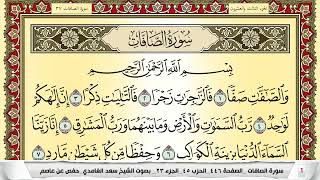 الجزء الثالث والعشرون
سورة الصافات ٣٧
سُورَةُ الصَّافَّاتِ
بِسْمِ اللَّهِ الرَّحْمَٰنِ الرَّحِيمِ
وَالصَّافَّاتِ صَفًّا ١ فَالزَّاجِرَاتِ زَجْرًا ٢ فَالتَّالِيَاتِ ذِكْرًا ٣ إِنَّ إِلَٰهَكُمْ
لَوَاحِدٌ ٤ رَّبُّ السَّمَاوَاتِ وَالْأَرْضِ وَمَا بَيْنَهُمَا وَرَبُّ الْمَشَارِقِ ٥ إِنَّا زَيَّنَّا
السَّمَاءَ الدُّنْيَا بِزِينَةٍ الْكَوَاكِبِ ٦ وَحِفْظًا مِّن كُلِّ شَيْطَانٍ مَّارِدٍ ٧
سورة الصافات الصفحة ٤٤٦ الحزب ٤٥ الجزء ٢٣ بصوت الشيخ سعد الغامدي حفص عن عاصم